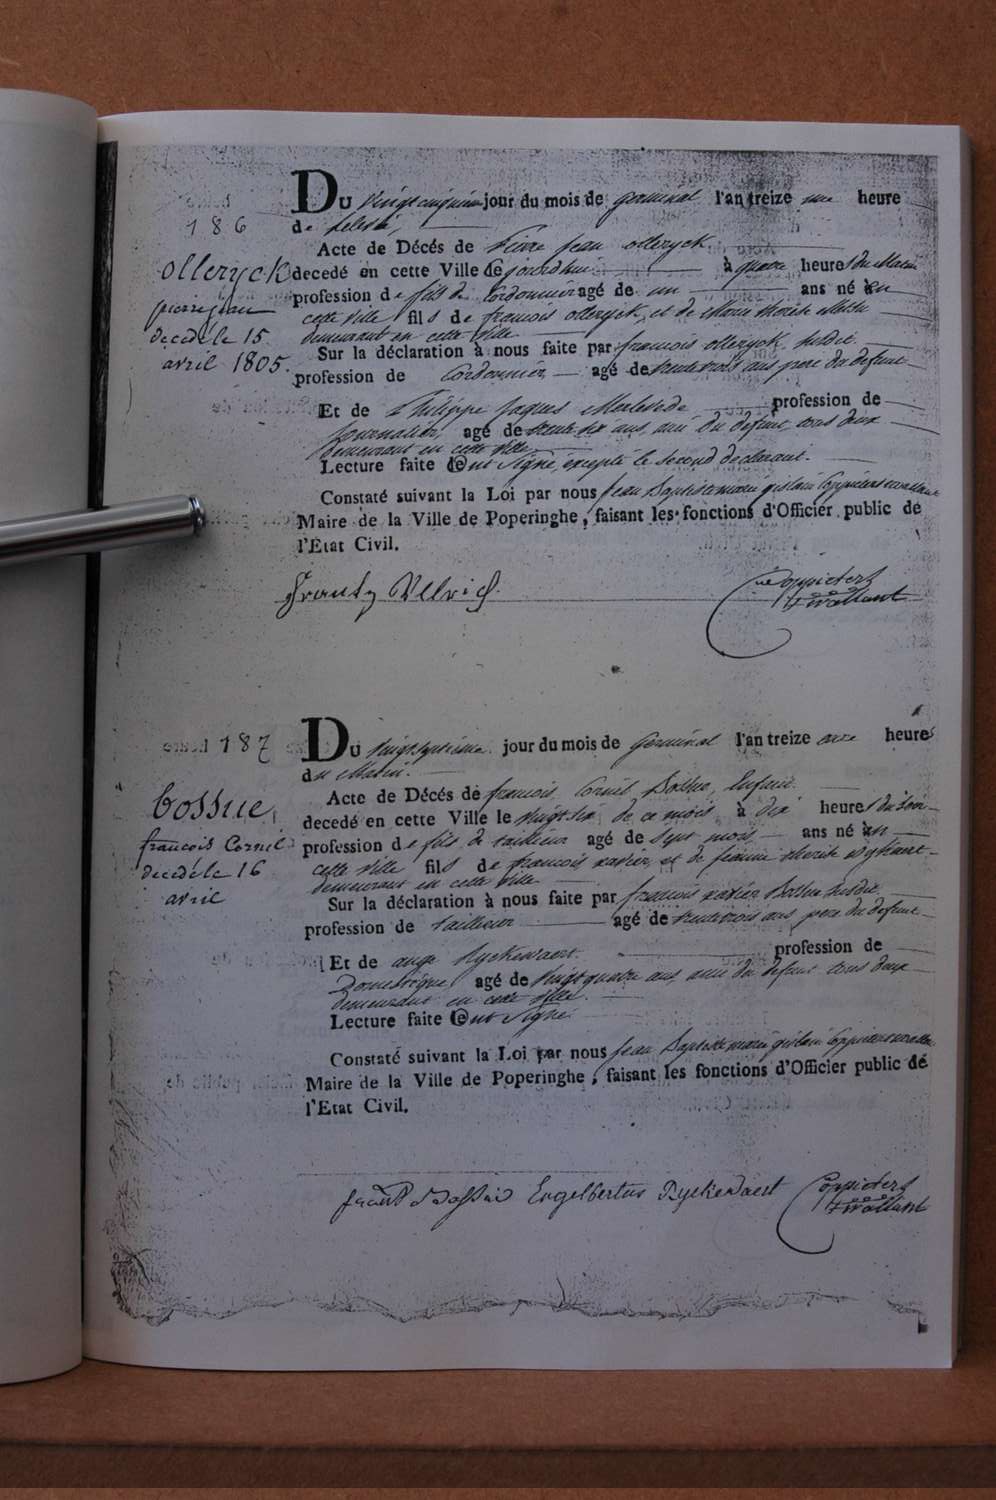 186
olleryck
pierre jean
decedé le 15
avril 1805.
DU vingt cinquieme jour du mois de germinal l'an treize une heure
de relevée,
Acte de Décés de Pierre Jean olleryck
decedé en cette Ville ce jourdhui à quatre heures du Matin
profession de fils de Cordonnier agé de un ans né en
cette ville fils de francois olleryck, et de Marie Therese
demeurant en cette ville
Sur la déclaration à nous faite par francois olleryck susdit
profession de Cordonnier agé de trente trois ans pere du defunt
Et de Philippe Jaques profession de
Journalier, agé de trente six ans, ami du defunt, tous deux
demeurant en cette ville
Lecture faite ont signé, excepté le second declarant.
Constaté suivant la Loi par nous Jean Baptiste marie gislain Coppieters
Maire de la Ville de Poperinghe, faisant les fonctions d'Officier public de
l'Etat Civil.
Frantz Ullrich
Coppieters
t'wallant
187
bossue,
francois Cornil
decedé le 16
avril
DU vingt septieme jour du mois de Germinal l'an treize onze heures
du Matin.
Acte de Décés de francois Cornil Bossue, Enfant
decedé en cette Ville le vingt six de ce mois à dix heures du soir
profession de fils de tailleur agé de sept mois ans né en
cette ville fils de francois xavier, et de jeanne therese
demeurant en cette ville
Sur la déclaration à nous faite par francois xavier Bossue susdit
profession de tailleur agé de trente trois ans pere du defunt
Et de ange Ryckewaert profession de
Domestique agé de vingt quatre ans, ami du defunt tous deux
demeurant en cette ville.
Lecture faite ont signé
Constaté suivant la Loi par nous Jean Baptiste marie gislain Coppieters
Maire de la Ville de Poperinghe, faisant les fonctions d'Officier public de
l'Etat Civil.
Engelbertus Ryckewaert
Coppieters
t'wallant